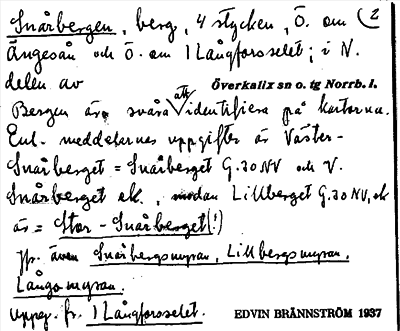 Snårbergen, berg, 4 stycken, Ö. om (2
Ängesån och Ö. om 1 Långforsselet; i N.
delen av Överkalix sn o. tg Norrb. l.
Bergen äro svåra att identifiera på kartorna.
Enl. meddelarnes uppgifter är Väster-
Snårberget = Snårberget G.30 NV och V.
Snårberget ek., medan Lillberget G.30 NV, ek
är = Stor-Snårberget (!)
Jfr. även Snårbergsmyran, Lillbergsmyran,
Långomyran.
Uppg. fr. 1 Långforsselet. EDVIN BRÄNNSTRÖM 1937